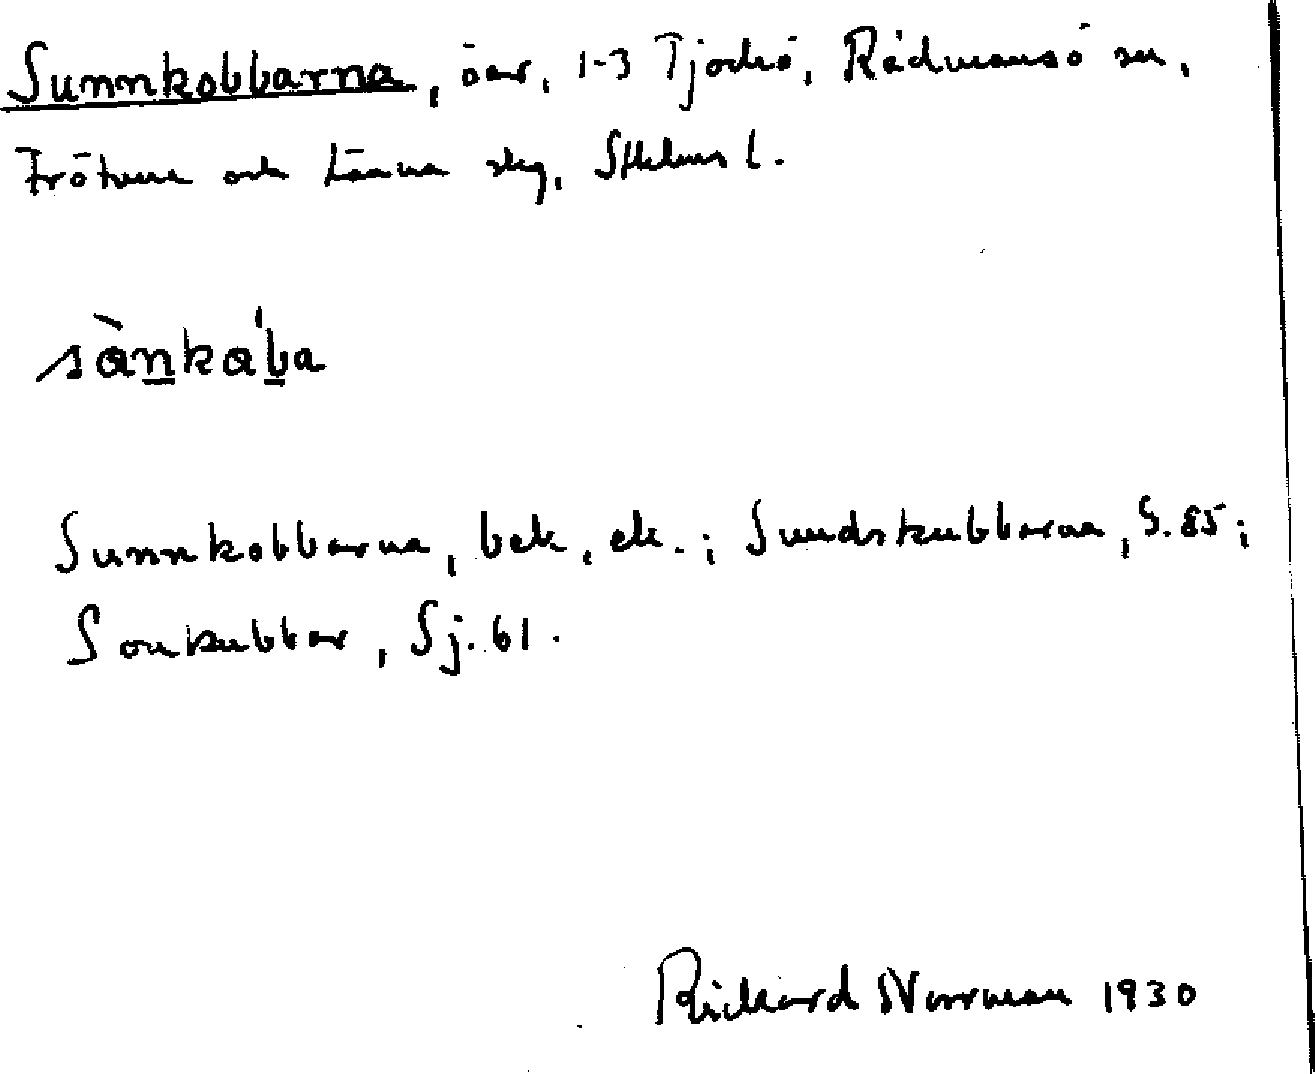 Sunnkobbarna, öar, 1-3 Tjockö, Rådmansö sn,
Frötuna och Länna skg, Sthlms l.
sànkába
Sunnkobbarna, bek, ek.; Sundskubbarna, G.85;
Sonkubbar, Sj.61.
Rickard Norrman 1930